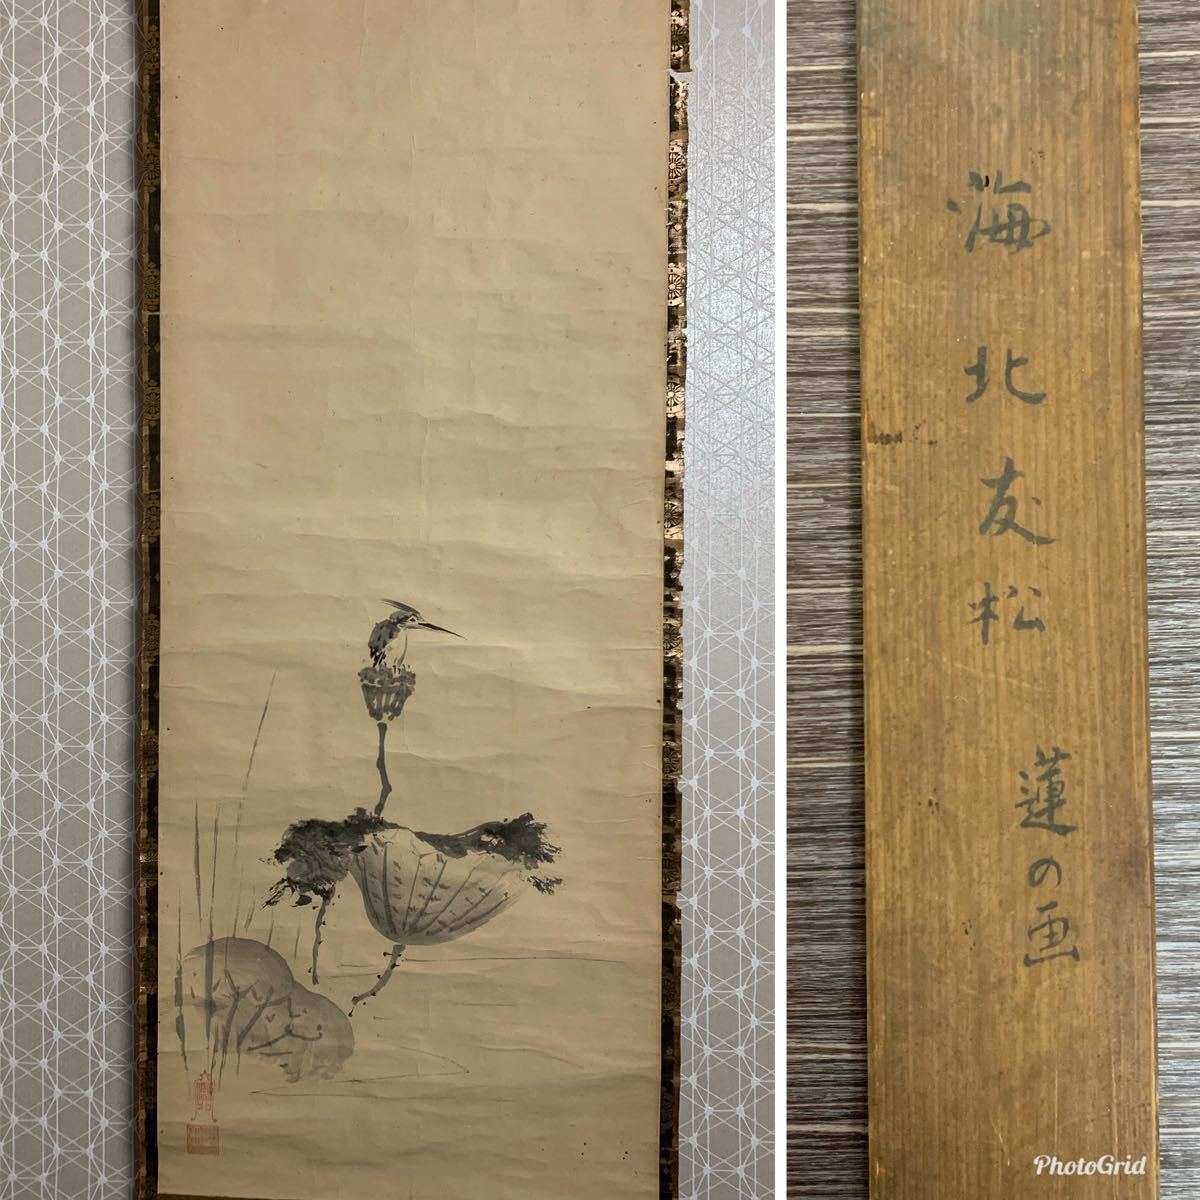 海北友松
蓮の画
PhotoGrid